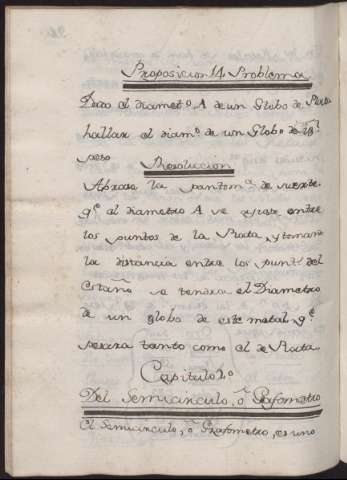 Proposicion 14 Problema
Dado el diamet.º A de un Globo de Plata
hallar el diam.º de un Globo de
peso
Resolucion
Abrase la pantom.ª de suerte
q.e el diametro A se ajuste entre
los puntos de la Plata, y tomase
la distancia entre los punt.s del
Estaño se tendra el Diametro
de un globo de este metal q.e
pesara tanto como el de Plata
Capitulo 2.º
Del Semicirculo, ô Grafometro
El Semicirculo, ô Grafometro, es uno